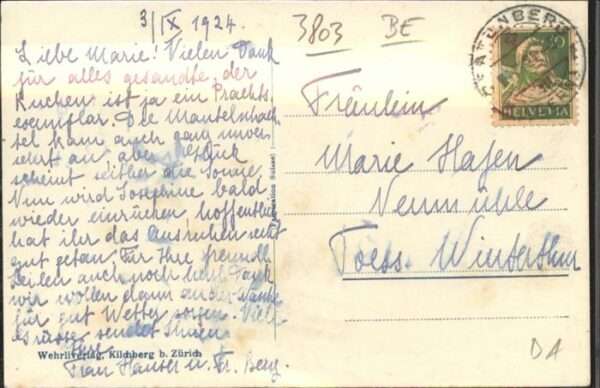 3/IX 1924.
Liebe Marie! Vielen Dank
für alles gesandte, der
Kuchen ist ja ein Prachts
exemplar. Die Mantelschach
tel kam auch ganz unver
sehrt an, aber
scheint seither die Sonne.
Nun wird Josephine bald
wieder einrücken hoffentlich
hat ihr das Ausruhen recht
gut getan. Für Ihre freundl.
Zeilen auch noch Dank
wir wollen dann
für gut Wetter sorgen. Viele
Grüsse sendet Ihnen
Ihre
Frau Hauser u. Fr. Berg.
Wehrliverlag, Kilchberg b. Zürich
3803 BE
30
HELVETIA
Fräulein
Marie Hafen
Neumühle
Toess. Winterthur
DA